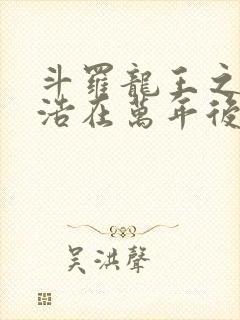 斗羅龍王之
浩在萬年後
吳洪聲